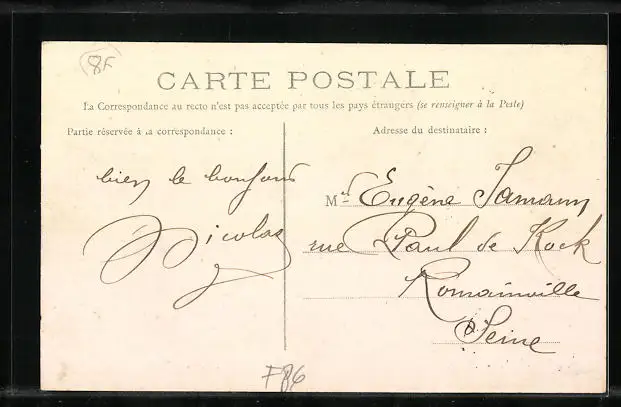 8F
CARTE POSTALE
La Correspondance au recto n'est pas acceptée par tous les pays étrangers (se renseigner à la Poste)
Partie réservée à la correspondance :
Adresse du destinataire :
bien le bonjour
Nicolas
Mr Eugène Jamaun
rue Paul de Kock
Romainville
Seine
F86